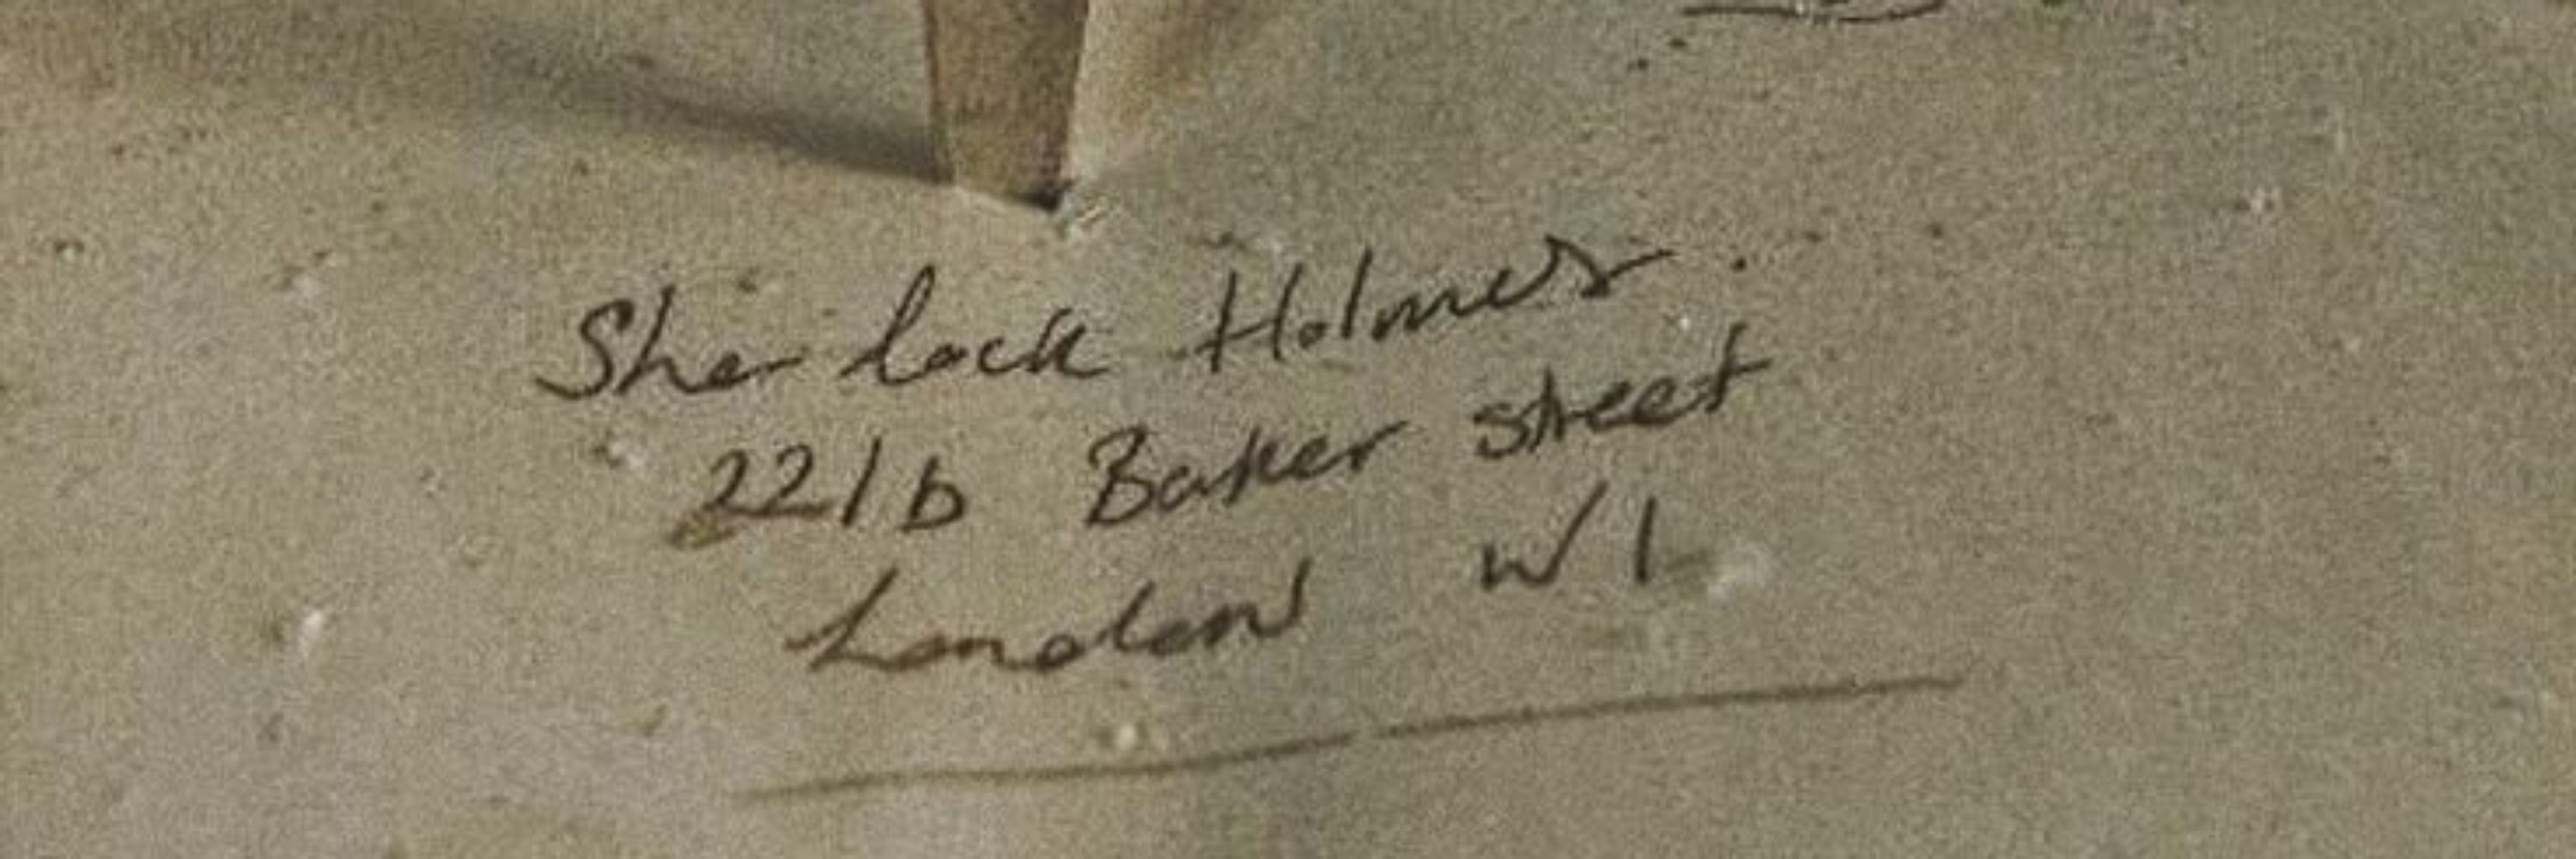 Sherlock Holmes.
221b Baker street
London W1